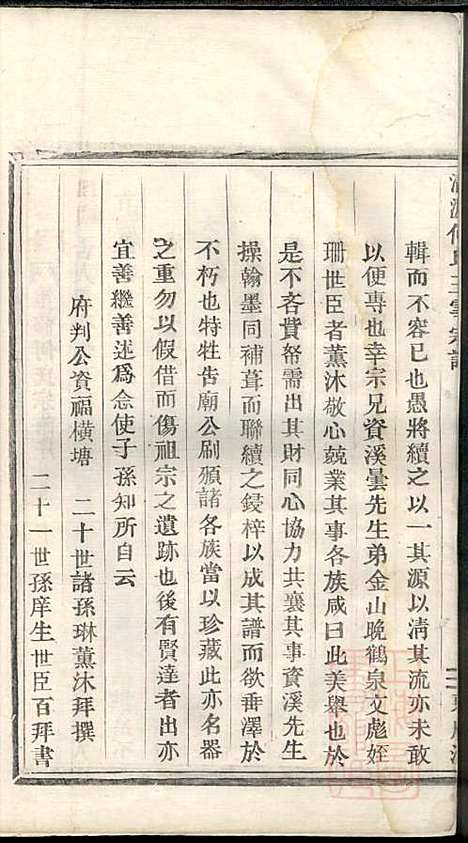 輯而不容已也愚將續之以一其源以淸其流亦未敢
以便專也幸宗兄資溪曇先生弟金山晚鶴泉文彪姪
珊世臣者薰沐敬心兢業其事各族咸曰此美舉也於
是不吝貲帑需出其財同心協力共襄其事資溪先生
操翰墨同補葺而聯續之鋟梓以成其譜而欲垂澤於
不朽也特牲告廟公刷頒諸各族當以珍藏此亦名器
之重勿以假借而傷祖宗之遺跡也後有賢達者出亦
宜善繼善述爲念使子孫知所自云
府判公資福橫塘　二十世諸孫琳薰沐拜撰
二十一世孫庠生世臣百拜書